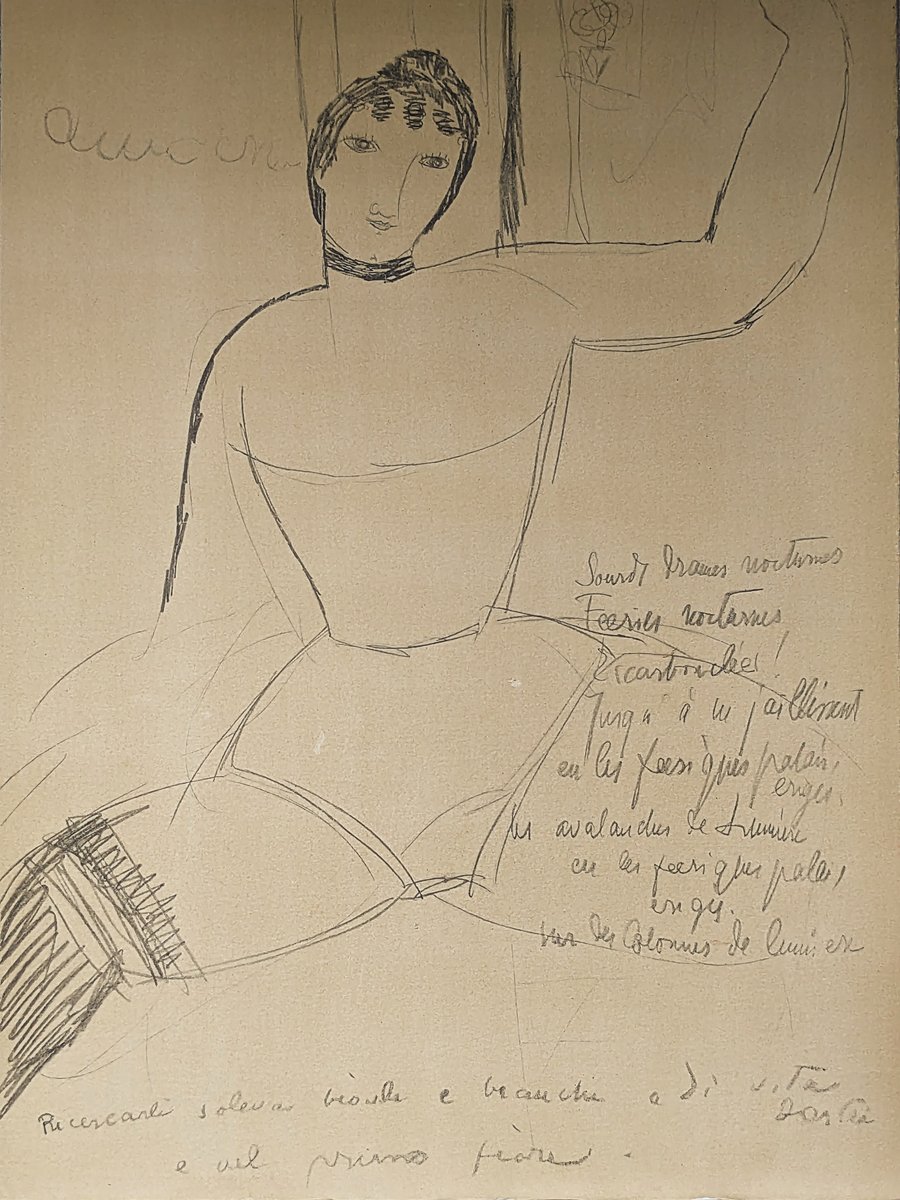 Sourds drames nocturnes
Feeries nocturnes
Escarboucles !
Jusqu'à ce jaillissent
en les feeriques palais,
eriges.
les avalanches de Lumiere
en les feeriques palais,
eriges.
sur des Colonnes de lumiere
Ricercarli e bianchi di vita
e nel primo fiore.